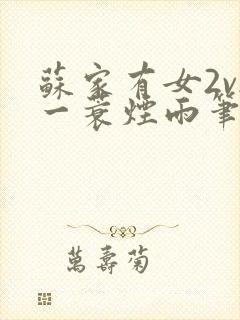 蘇家有女2v
一蓑煙雨筆
萬壽菊